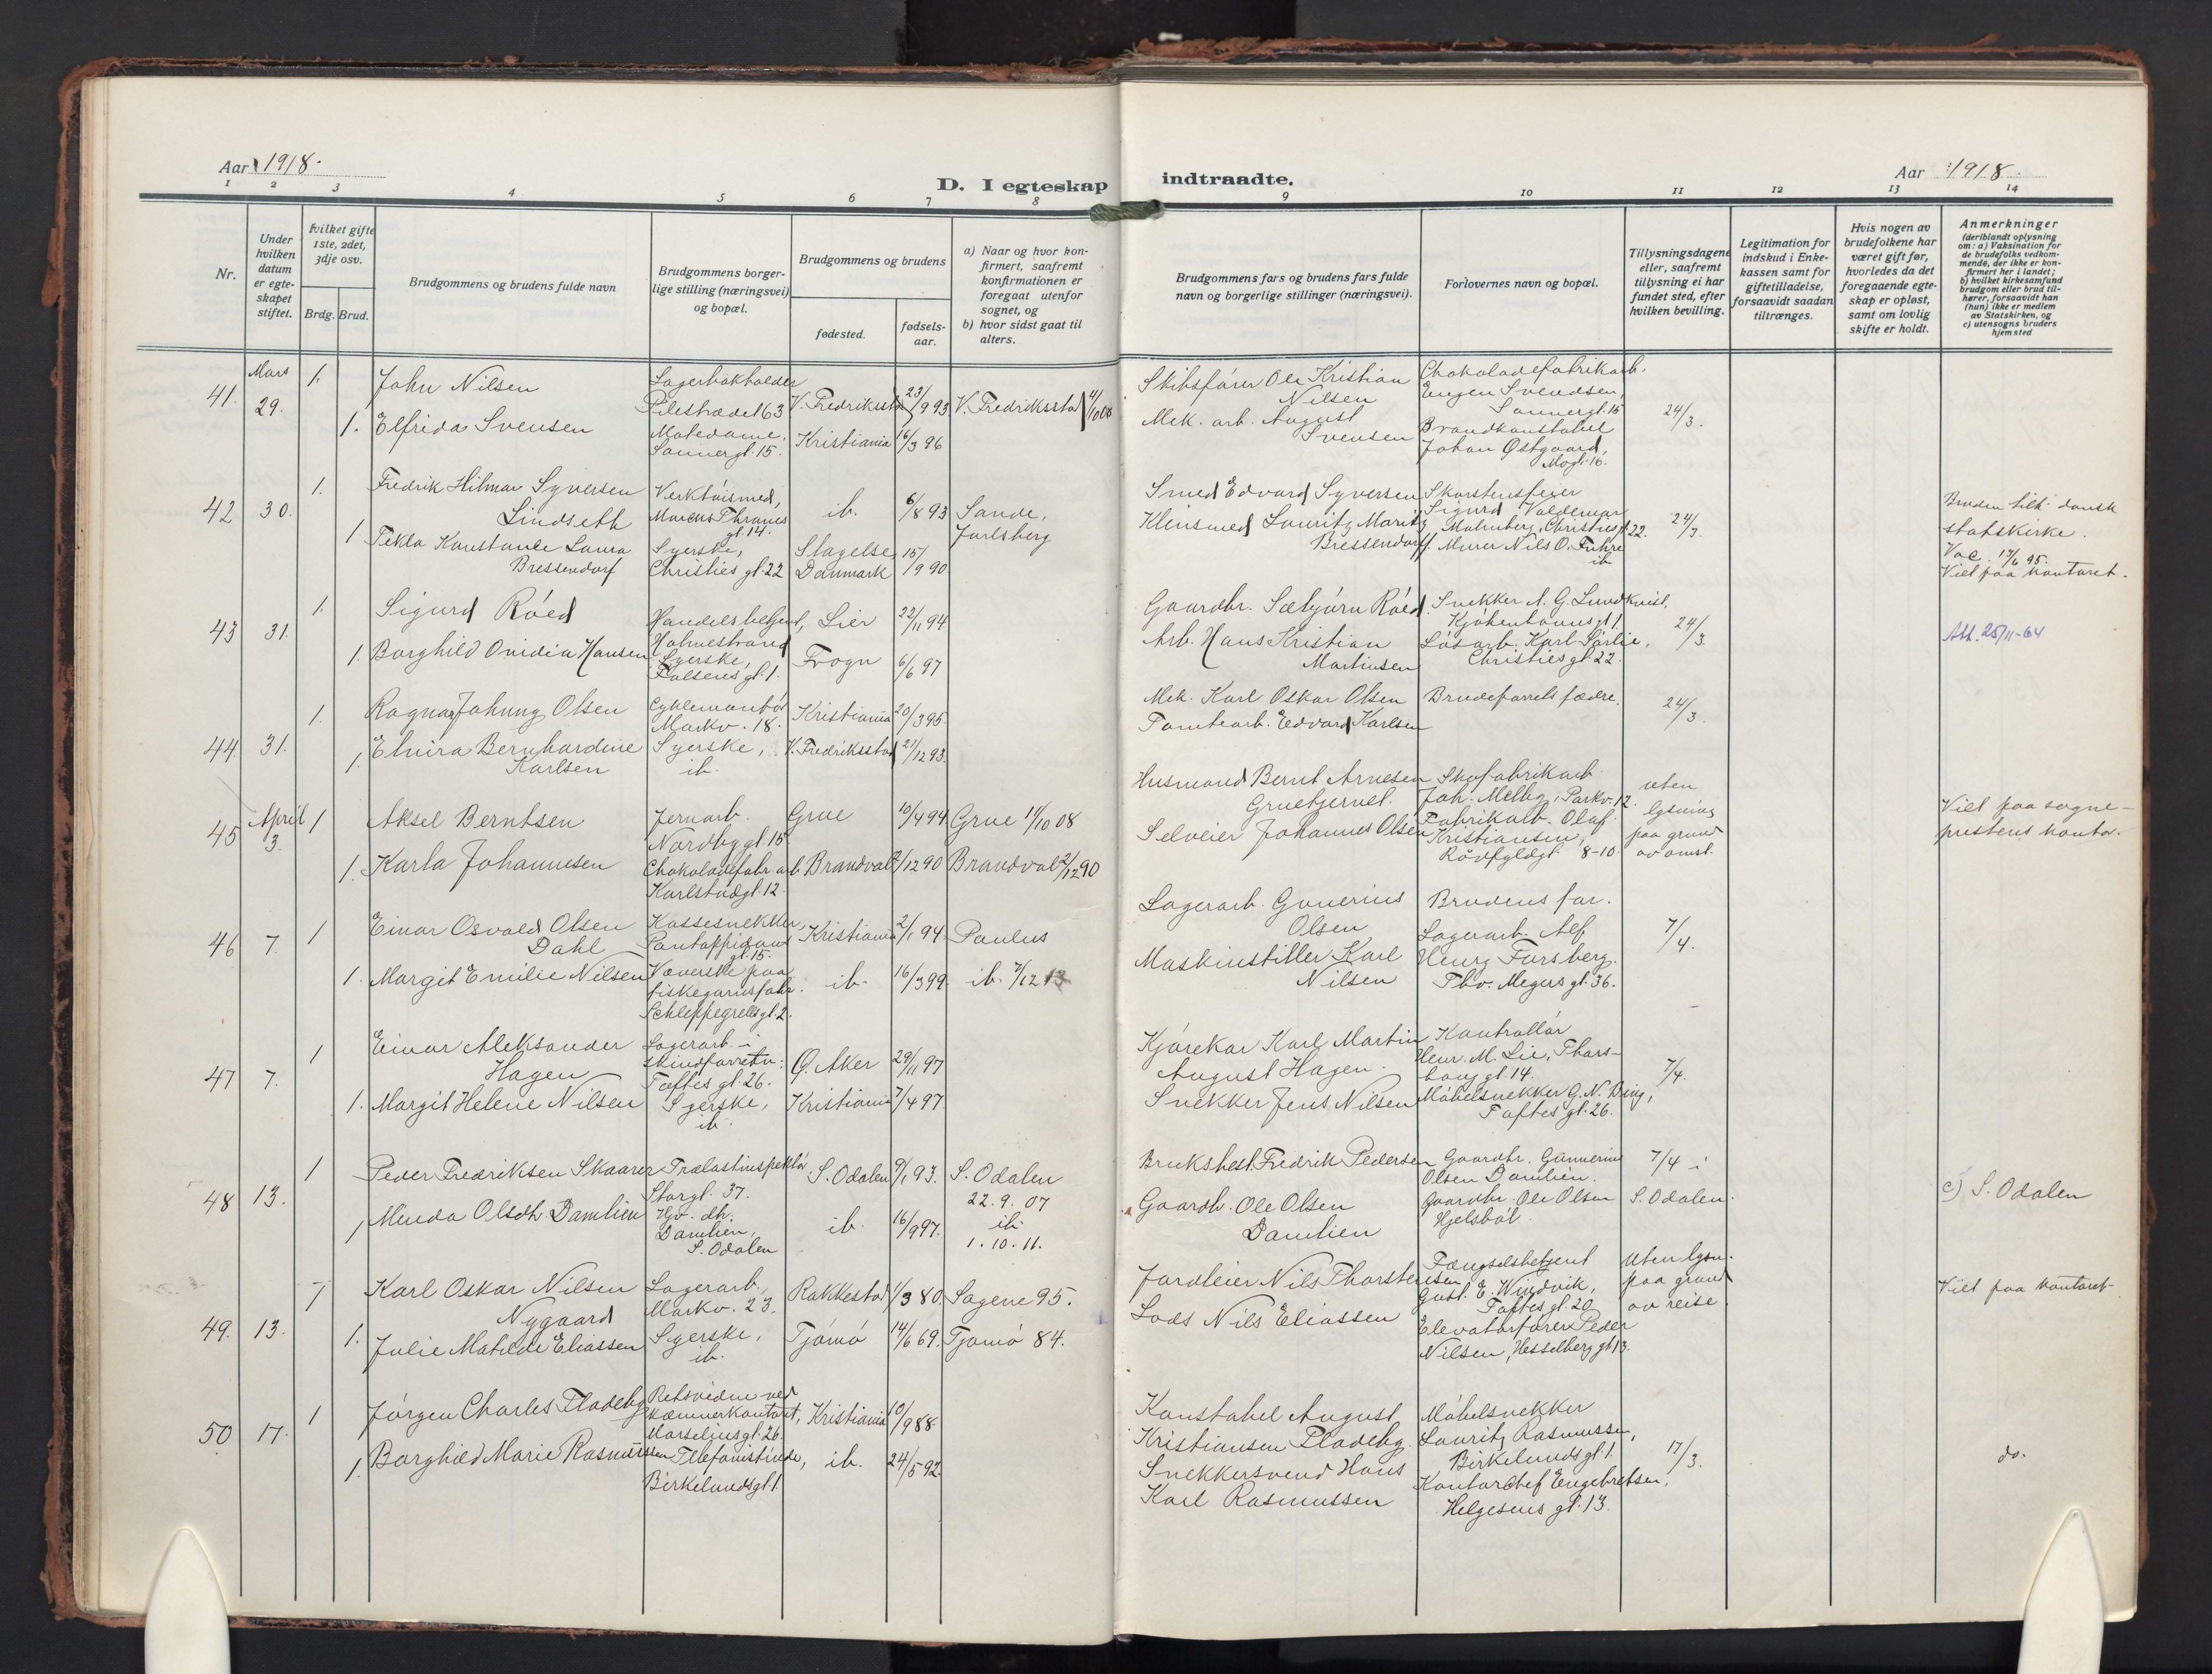 Aar 1918.
D. I egteskap indtraadte.
Aar 1918.
1 2 3 4 5 6 7 8 9 10 11 12 13 14
Nr.
Under hvilken datum er egteskapet stiftet.
Hvilket gifte 1ste, 2det, 3dje osv.
Brdg. Brud.
Brudgommens og brudens fulde navn
Brudgommens borgerlige stilling (næringsvei) og bopæl.
Brudgommens og brudens
fødested.
fødselsaar.
a) Naar og hvor konfirmert, saafremt konfirmationen er foregaat utenfor sognet, og
b) hvor sidst gaat til alters.
Brudgommens fars og brudens fars fulde navn og borgerlige stillinger (næringsvei).
Forlovernes navn og bopæl.
Tillysningsdagene eller, saafremt tillysning ei har fundet sted, efter hvilken bevilling.
Legitimation for indskud i Enkekassen samt for giftetilladelse, forsaavidt saadan tiltrænges.
Hvis nogen av brudefolkene har været gift før, hvorledes da det foregaaende egteskap er opløst, samt om lovlig skifte er holdt.
Anmerkninger (deriblandt oplysning om: a) Vaksination for de brudefolks vedkommende, der ikke er konfirmert her i landet; b) hvilket kirkesamfund brudgom eller brud tilhører, forsaavidt han (hun) ikke er medlem av Statskirken, og c) utensogns bruders hjemsted
41. Mars 29. 1. John Nilsen
Lagerbokholder Pilestrædet 63
V. Fredriksstad 23/9 93 V. Fredriksstad 4/10 08
Skibsfører Ole Kristian Nilsen
Chokoladefabrikarb. Eugen Svendsen, Sannergt. 15
24/3.
1. Elfrida Svensen
Motedame, Sannergt. 15.
Kristiania 16/3 96
Mek. arb. August Svensen
Brandkonstabel Johan Østgaard, Mogt. 16.
42 30. 1. Fredrik Hilmar Syversen Lindseth
Verktøismed, Marcus Thranes gt. 14.
ib. 6/8 93 Sande, Jarlsberg
Smed Edvard Syversen
Skorstensfeier Sigurd Valdemar Malmberg, Christies gt. 22.
24/3.
1 Tekla Konstance Laura Bressendorf
Syerske, Christies gt. 22
Slagelse, Danmark 15/9 90
Kleinsmed Lauritz Moritz Bressendorff.
Murer Nils O. Fuhre ib
Bruden tilh. dansk statskirke.
Vac. 14/6 95.
Viet paa kontoret.
43 31. 1. Sigurd Røed
Handelsbetjent, Holmestrand
Lier 22/11 94
Gaardbr. Sæbjørn Røed.
Snekker A. G. Lundkvist, Kjøbenhavnsgt. 1.
24/3.
1. Borghild Ovidia Hansen
Syerske, Falsens gt. 1.
Frogn 6/6 97
Arb. Hans Kristian Martinsen
Løsarb. Karl Sørlie, Christies gt. 22.
Att. 25/11-64
44. 31. 1. Ragnar Johnny Olsen
Cyklemontør Markv. 18.
Kristiania 20/3 95
Mek. Karl Oskar Olsen
Brudeparrets fædre.
24/3.
1. Elvira Bernhardine Karlsen
Syerske, ib.
V. Fredriksstad 21/12 93.
Tomtearb. Edvard Karlsen
45 April 3. 1 Aksel Berntsen
Jernarb. Nordbygt. 15
Grue 10/4 94 Grue 11/10 08
Husmand Bernt Arnesen Gruetjernet.
Skofabrikarb. Joh. Melby, Parkv. 12.
uten lysning paa grund av omst.
1. Karla Johannesen
Chokoladefabr. arb Karlstadgt. 12.
Brandval 2/12 90 Brandval 2/12 90
Selveier Johannes Olsen
Fabrikarb. Olaf Kristiansen, 8-10.
Viet paa sogneprestens kontor.
46 7. 1 Einar Osvald Olsen Dahl
Kassesnekker, Pontoppidans gt. 15.
Kristiania 2/1 94 Paulus
Lagerarb. Gunerius Olsen
Brudens far.
7/4.
1. Margit Emilie Nilsen
Væverske paa fiskegarnsfabr. Schleppegrells gt. 2.
ib. 16/3 99. ib. 7/12 13
Maskinstiller Karl Nilsen
Lagerarb. Alf Henry Forsberg. Thv. Meyers gt. 36.
47 7. 1 Einar Aleksander Hagen
Lagerarb. i skindforretn. Toftes gt. 26.
Ø. Aker 29/11 97
Kjørekar Karl Martin August Hagen.
Kontrollør Henr. M. Lie, Thorshaug gt. 14.
7/4.
1. Margit Helene Nilsen
Syerske, ib.
Kristiania 7/4 97.
Snekker Jens Nilsen
Møbelsnekker G. N. Bing, Toftes gt. 26.
48 13. 1 Peder Fredriksen Skaarer
Trælastinspektør Storgt. 37.
S. Odalen 9/1 93. S. Odalen 22. 9. 07
Bruksbest. Fredrik Pedersen
Gaardbr. Gunnerius Olsen Damlien.
7/4 i S. Odalen.
1 Minda Olsdt. Damlien
Gv. dtr. Damlien, S. Odalen
ib. 16/9 97. ib. 1. 10. 11.
Gaardb. Ole Olsen Damlien
Gaardbr. Ole Olsen Hjelsbøl.
c) S. Odalen
49. 13. 1 Karl Oskar Nilsen Nygaard
Lagerarb., Markv. 23.
Rakkestad 1/3 80. Sagene 95.
Jordleier Nils Thorstensen
Fængselsbetjent Gust. E. Windvik, Toftes gt. 20
Uten lysn. paa grund av reise.
1. Julie Matilde Eliassen
Syerske, ib.
Tjømø 14/6 69. Tjømø 84.
Lods Nils Eliassen
Elevatorfører Peder Nilsen, Hesselberg gt. 13.
Viet paa kontoret.
50 17. 1 Jørgen Charles Fladeby
Retsvidne ved kæmnerkontoret, Marselius gt. 26.
Kristiania 10/9 88
Konstabel August Kristiansen Fladeby.
Møbelsnekker Lauritz Rasmussen, Birkelunds gt. 1.
17/3.
1. Borghild Marie Rasmussen
Telefonistinde, Birkelunds gt. 1.
ib. 24/5 92.
Snekkersvend Hans Karl Rasmussen
Kontorchef Engebretsen, Helgesens gt. 13.
do.